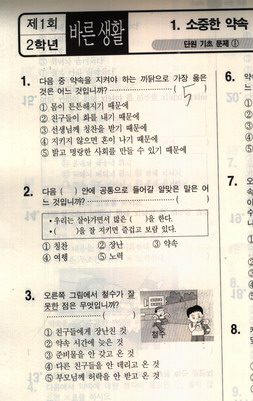 제1회
2학년
바른 생활
1. 소중한 약속
단원 기초 문제 ①
1. 다음 중 약속을 지켜야 하는 까닭으로 가장 옳은
것은 어느 것입니까? ( 5 )
① 몸이 튼튼해지기 때문에
② 친구들이 화를 내기 때문에
③ 선생님께 칭찬을 받기 때문에
④ 지키지 않으면 혼이 나기 때문에
⑤ 밝고 명랑한 사회를 만들 수 있기 때문에
2. 다음 ( ) 안에 공통으로 들어갈 알맞은 말은 어
느 것입니까? ( )
• 우리는 살아가면서 많은 ( )을 한다.
• ( )을 잘 지키면 즐겁고 보람 있다.
① 칭찬 ② 장난 ③ 약속
④ 여행 ⑤ 노력
3. 오른쪽 그림에서 철수가 잘
못한 점은 무엇입니까?
( )
철수
① 친구들에게 장난친 것
② 약속 시간에 늦은 것
③ 준비물을 안 갖고 온 것
④ 다른 친구들을 안 데리고 온 것
⑤ 부모님께 허락을 안 받고 온 것
6.
7.
8.